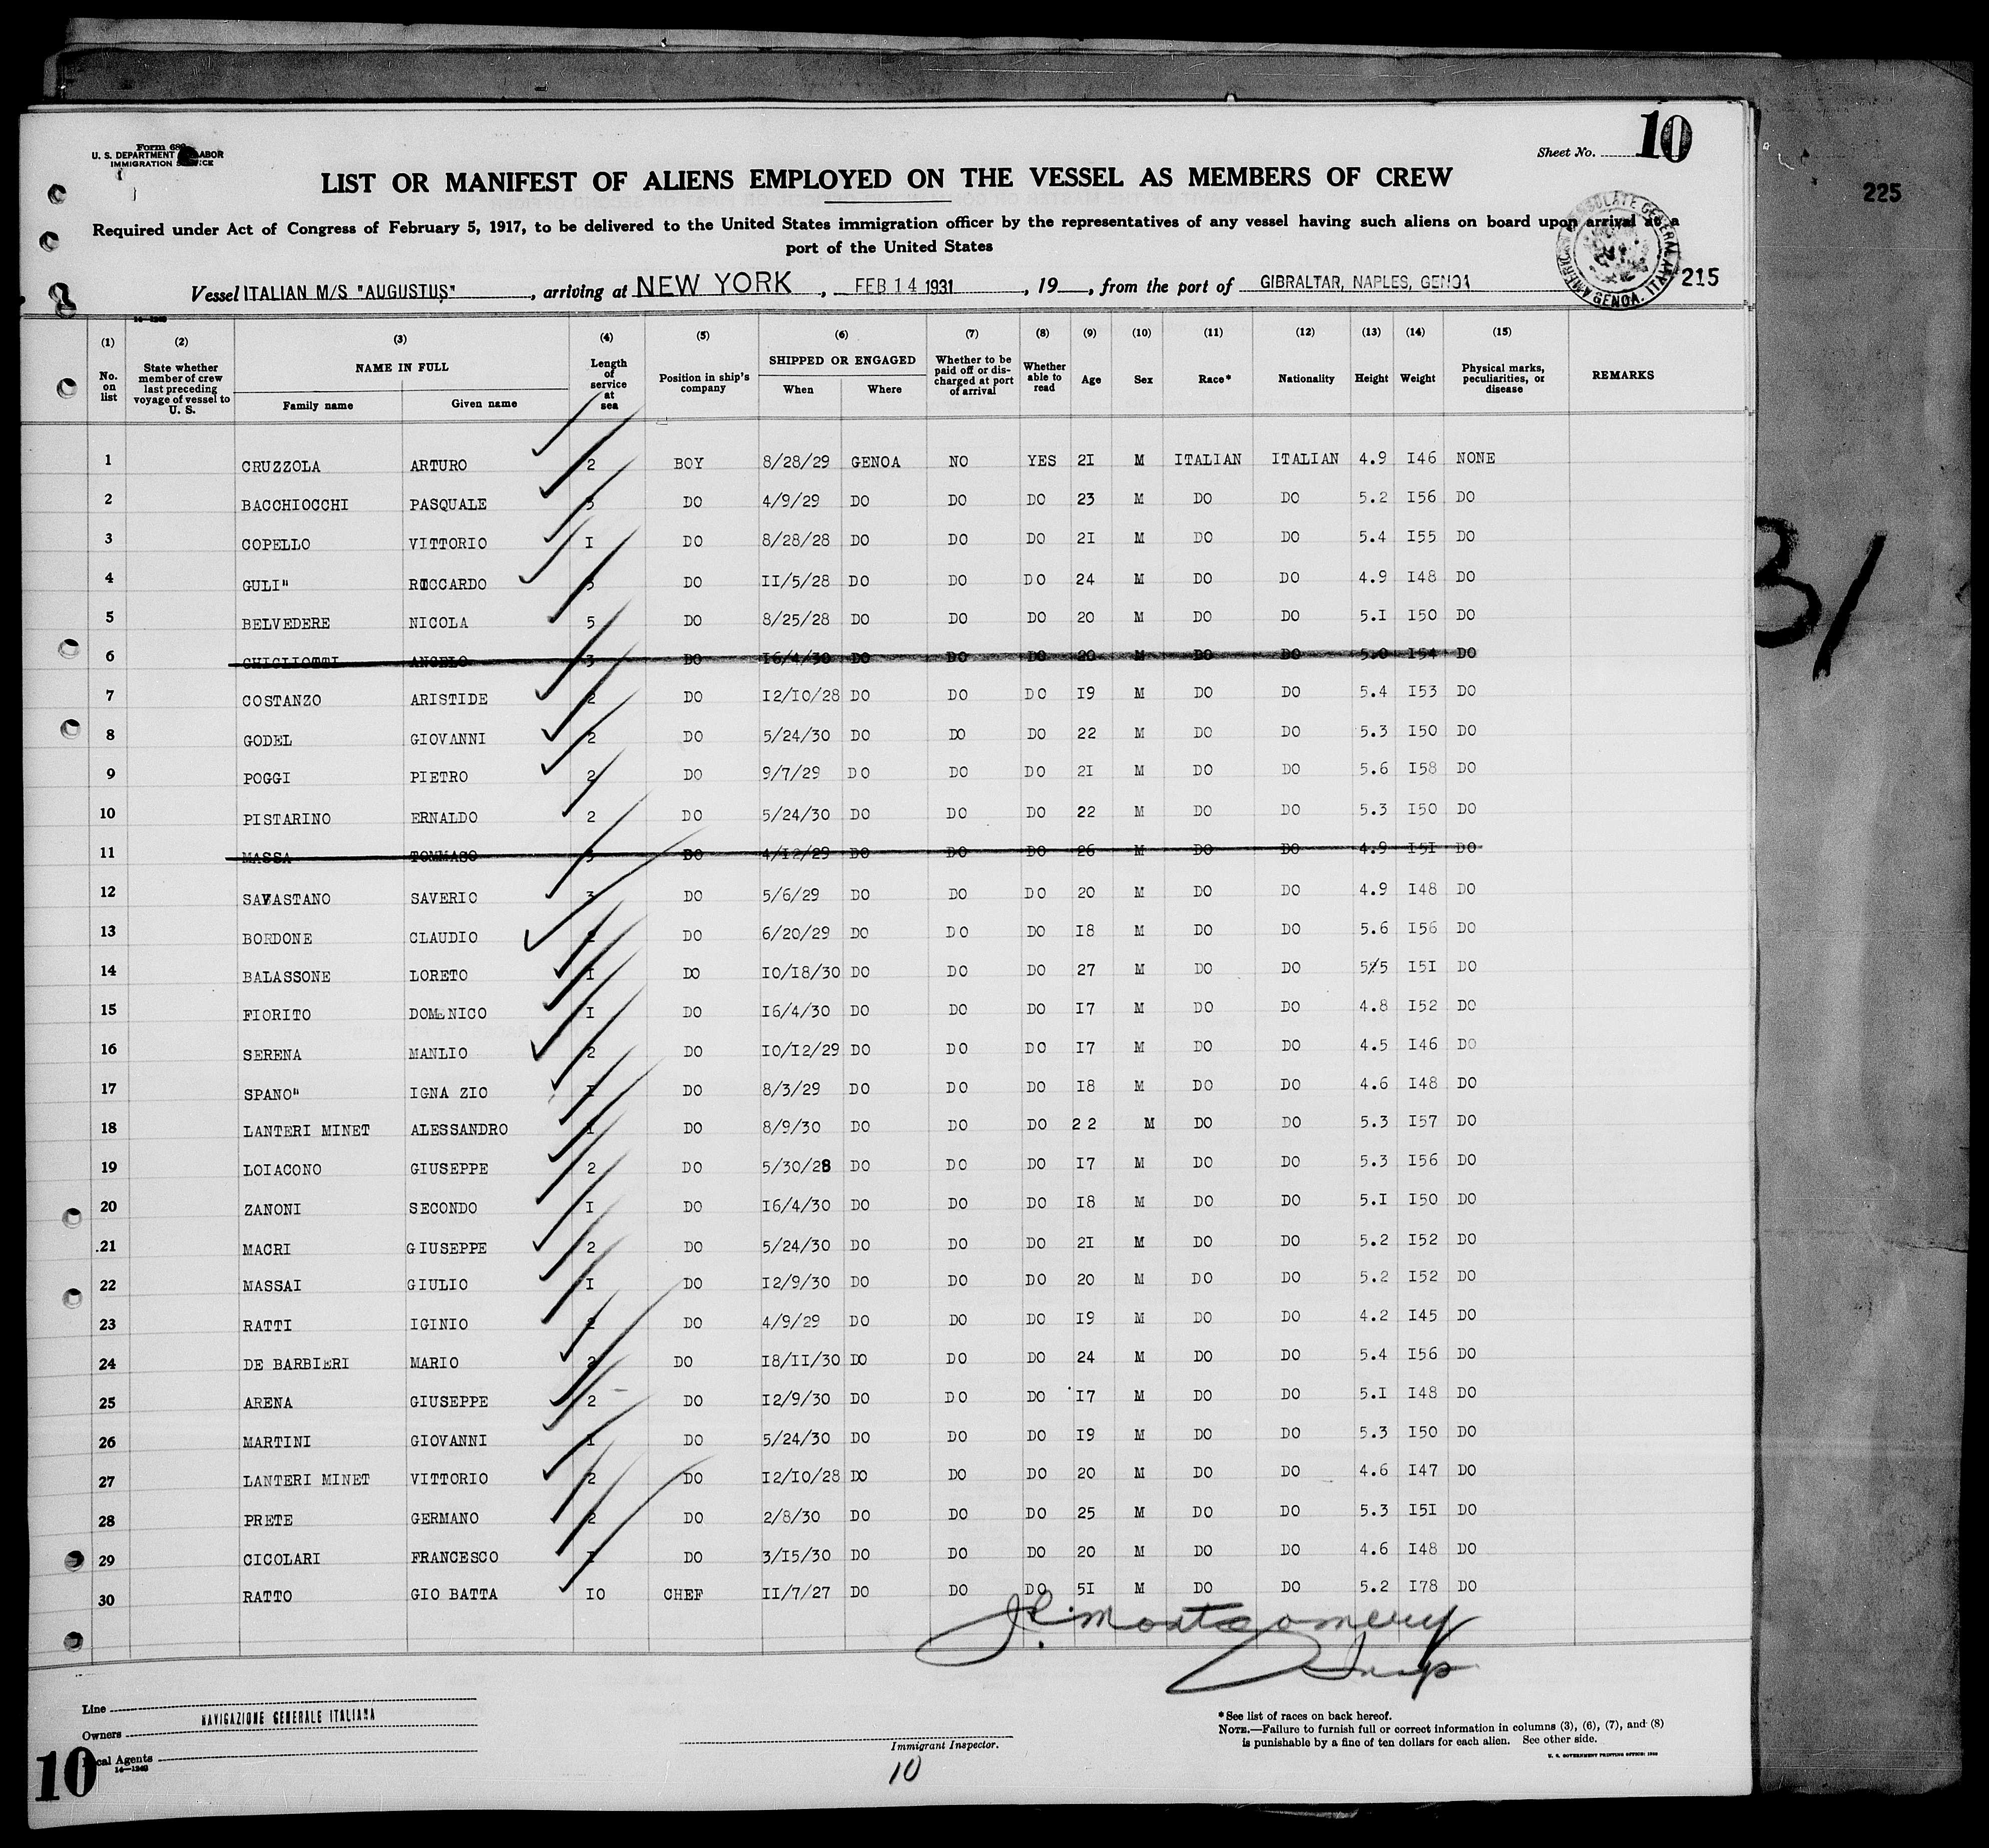 10
Form 68
U. S. DEPARTMENT LABOR
IMMIGRATION
Sheet No. 10
LIST OR MANIFEST OF ALIENS EMPLOYED ON THE VESSEL AS MEMBERS OF CREW
225
Required under Act of Congress of February 5, 1917, to be delivered to the United States immigration officer by the representatives of any vessel having such aliens on board upon arrival at a
port of the United States
AMERICAN CONSULATE GENERAL GENOA, ITALY
215
Vessel ITALIAN M/S "AUGUSTUS", arriving at NEW YORK, FEB 14 1931, 19, from the port of GIBRALTAR, NAPLES, GENOA
14—1240
(1) No. on list (2) State whether member of crew last preceding voyage of vessel to U. S. (3) NAME IN FULL Family name Given name (4) Length of service at sea (5) Position in ship's company (6) SHIPPED OR ENGAGED When Where (7) Whether to be paid off or discharged at port of arrival (8) Whether able to read (9) Age (10) Sex (11) Race* (12) Nationality (13) Height (14) Weight (15) Physical marks, peculiarities, or disease REMARKS
1 CRUZZOLA ARTURO 2 BOY 8/28/29 GENOA NO YES 2I M ITALIAN ITALIAN 4.9 I46 NONE
2 BACCHIOCCHI PASQUALE DO 4/9/29 DO DO DO 23 M DO DO 5.2 I56 DO
3 COPELLO VITTORIO I DO 8/28/28 DO DO DO 2I M DO DO 5.4 I55 DO
4 GULI" RICCARDO DO II/5/28 DO DO DO 24 M DO DO 4.9 I48 DO
5 BELVEDERE NICOLA 5 DO 8/25/28 DO DO DO 20 M DO DO 5.I I50 DO
6 GHIGLIOTTI ANGELO 3 DO I6/4/30 DO DO DO 20 M DO DO 5.0 I54 DO
7 COSTANZO ARISTIDE 2 DO I2/I0/28 DO DO DO I9 M DO DO 5.4 I53 DO
8 GODEL GIOVANNI 2 DO 5/24/30 DO DO DO 22 M DO DO 5.3 I50 DO
9 POGGI PIETRO 2 DO 9/7/29 DO DO DO 2I M DO DO 5.6 I58 DO
10 PISTARINO ERNALDO 2 DO 5/24/30 DO DO DO 22 M DO DO 5.3 I50 DO
11 MASSA TOMMASO 3 DO 4/I2/29 DO DO DO 26 M DO DO 4.9 I5I DO
12 SAVASTANO SAVERIO 3 DO 5/6/29 DO DO DO 20 M DO DO 4.9 I48 DO
13 BORDONE CLAUDIO DO 6/20/29 DO DO DO I8 M DO DO 5.6 I56 DO
14 BALASSONE LORETO I DO I0/I8/30 DO DO DO 27 M DO DO 5/5 I5I DO
15 FIORITO DOMENICO I DO I6/4/30 DO DO DO I7 M DO DO 4.8 I52 DO
16 SERENA MANLIO 2 DO I0/I2/29 DO DO DO I7 M DO DO 4.5 I46 DO
17 SPANO" IGNA ZIO I DO 8/3/29 DO DO DO I8 M DO DO 4.6 I48 DO
18 LANTERI MINET ALESSANDRO I DO 8/9/30 DO DO DO 2 2 M DO DO 5.3 I57 DO
19 LOIACONO GIUSEPPE 2 DO 5/30/28 DO DO DO I7 M DO DO 5.3 I56 DO
20 ZANONI SECONDO I DO I6/4/30 DO DO DO I8 M DO DO 5.I I50 DO
21 MACRI GIUSEPPE 2 DO 5/24/30 DO DO DO 2I M DO DO 5.2 I52 DO
22 MASSAI GIULIO I DO I2/9/30 DO DO DO 20 M DO DO 5.2 I52 DO
23 RATTI IGINIO 2 DO 4/9/29 DO DO DO I9 M DO DO 4.2 I45 DO
24 DE BARBIERI MARIO 2 DO I8/II/30 DO DO DO 24 M DO DO 5.4 I56 DO
25 ARENA GIUSEPPE 2 DO I2/9/30 DO DO DO I7 M DO DO 5.I I48 DO
26 MARTINI GIOVANNI I DO 5/24/30 DO DO DO I9 M DO DO 5.3 I50 DO
27 LANTERI MINET VITTORIO 2 DO I2/I0/28 DO DO DO 20 M DO DO 4.6 I47 DO
28 PRETE GERMANO 2 DO 2/8/30 DO DO DO 25 M DO DO 5.3 I5I DO
29 CICOLARI FRANCESCO I DO 3/I5/30 DO DO DO 20 M DO DO 4.6 I48 DO
30 RATTO GIO BATTA I0 CHEF II/7/27 DO DO DO 5I M DO DO 5.2 I78 DO
31
Montgomery
Insp
Line
Owners NAVIGAZIONE GENERALE ITALIANA
Local Agents
14—1240
10
Immigrant Inspector.
10
* See list of races on back hereof.
NOTE.—Failure to furnish full or correct information in columns (3), (6), (7), and (8)
is punishable by a fine of ten dollars for each alien. See other side.
U. S. GOVERNMENT PRINTING OFFICE